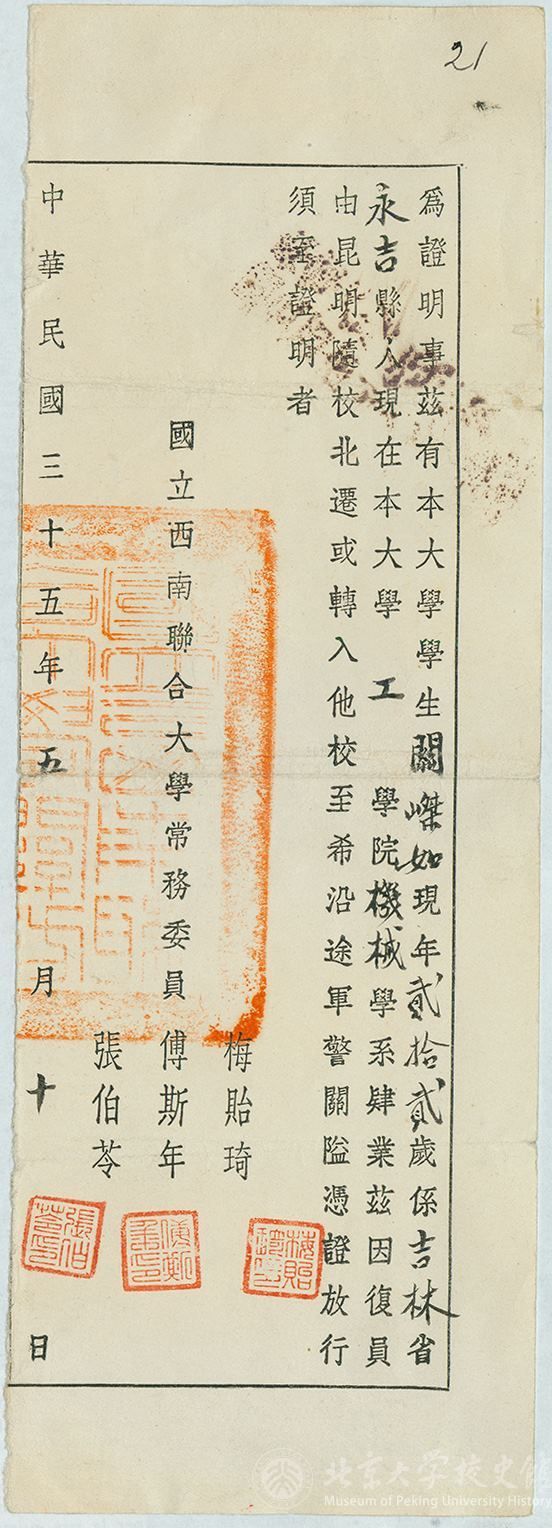 21
爲證明事茲有本大學學生關嶸如現年貳拾貳歲係吉林省
永吉縣人現在本大學工學院機械學系肄業茲因復員
由昆明隨校北遷或轉入他校至希沿途軍警關隘憑證放行
須至證明者
國立西南聯合大學常務委員
梅貽琦
傅斯年
張伯苓
中華民國三十五年五月十日
張伯苓印
北京大学校史館
Museum of Peking University History